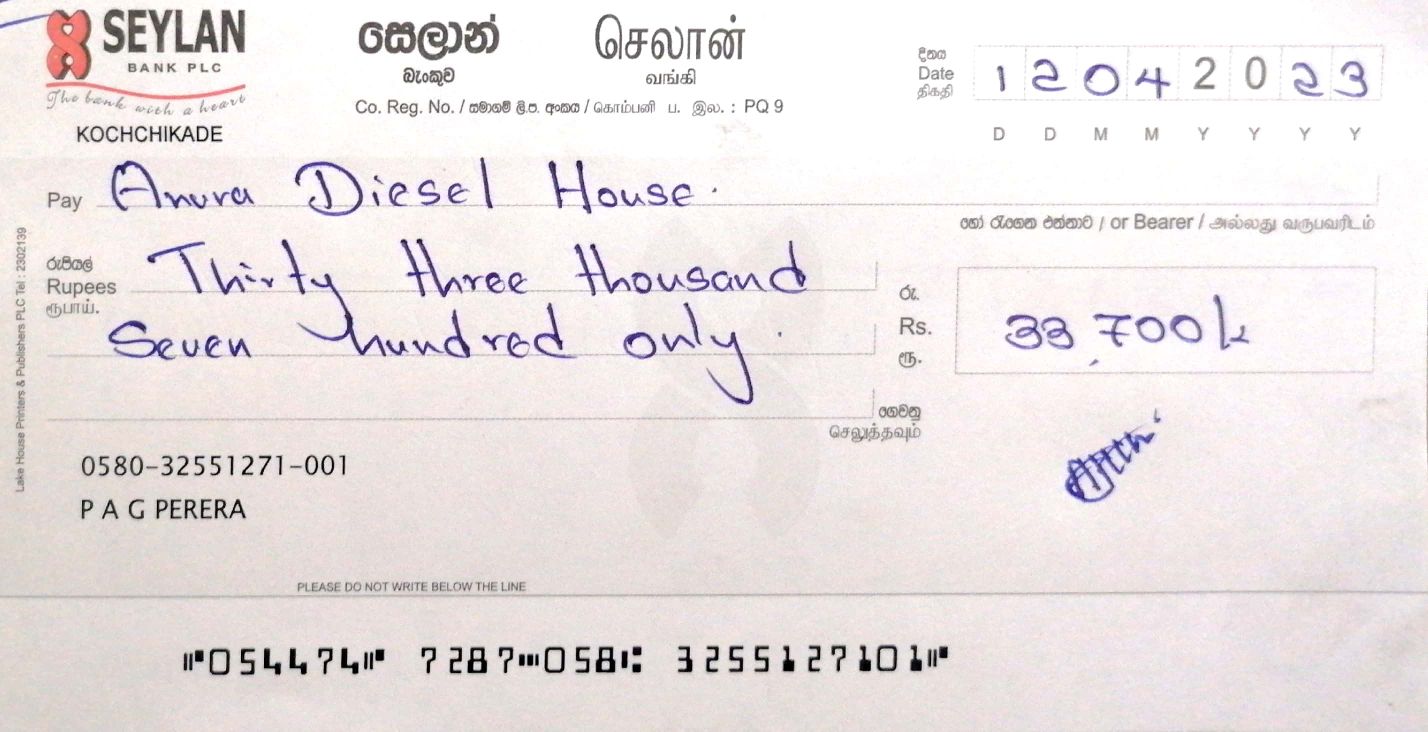 SEYLAN
BANK PLC
The bank with a heart
KOCHCHIKADE
සෙලාන්
බැංකුව
செலான்
வங்கி
Co. Reg. No. / සමාගම් ලි.ප. අංකය / கொம்பனி ப. இல. : PQ 9
දිනය
Date
திகதி
1 2 0 4 2 0 2 3
D D M M Y Y Y Y
Pay Anura Diesel House.
හෝ රැගෙන එන්නාට / or Bearer / அல்லது வருபவரிடம்
රුපියල්
Rupees
ரூபாய்.
Thirty three thousand
Seven hundred only.
රු.
Rs.
ரூ.
33,700/-
ගෙවනු
செலுத்தவும்
0580-32551271-001
P A G PERERA
Lake House Printers & Publishers PLC Tel : 2302139
PLEASE DO NOT WRITE BELOW THE LINE
⑈054474⑈ 7287⑉058⑆ 3255127101⑈